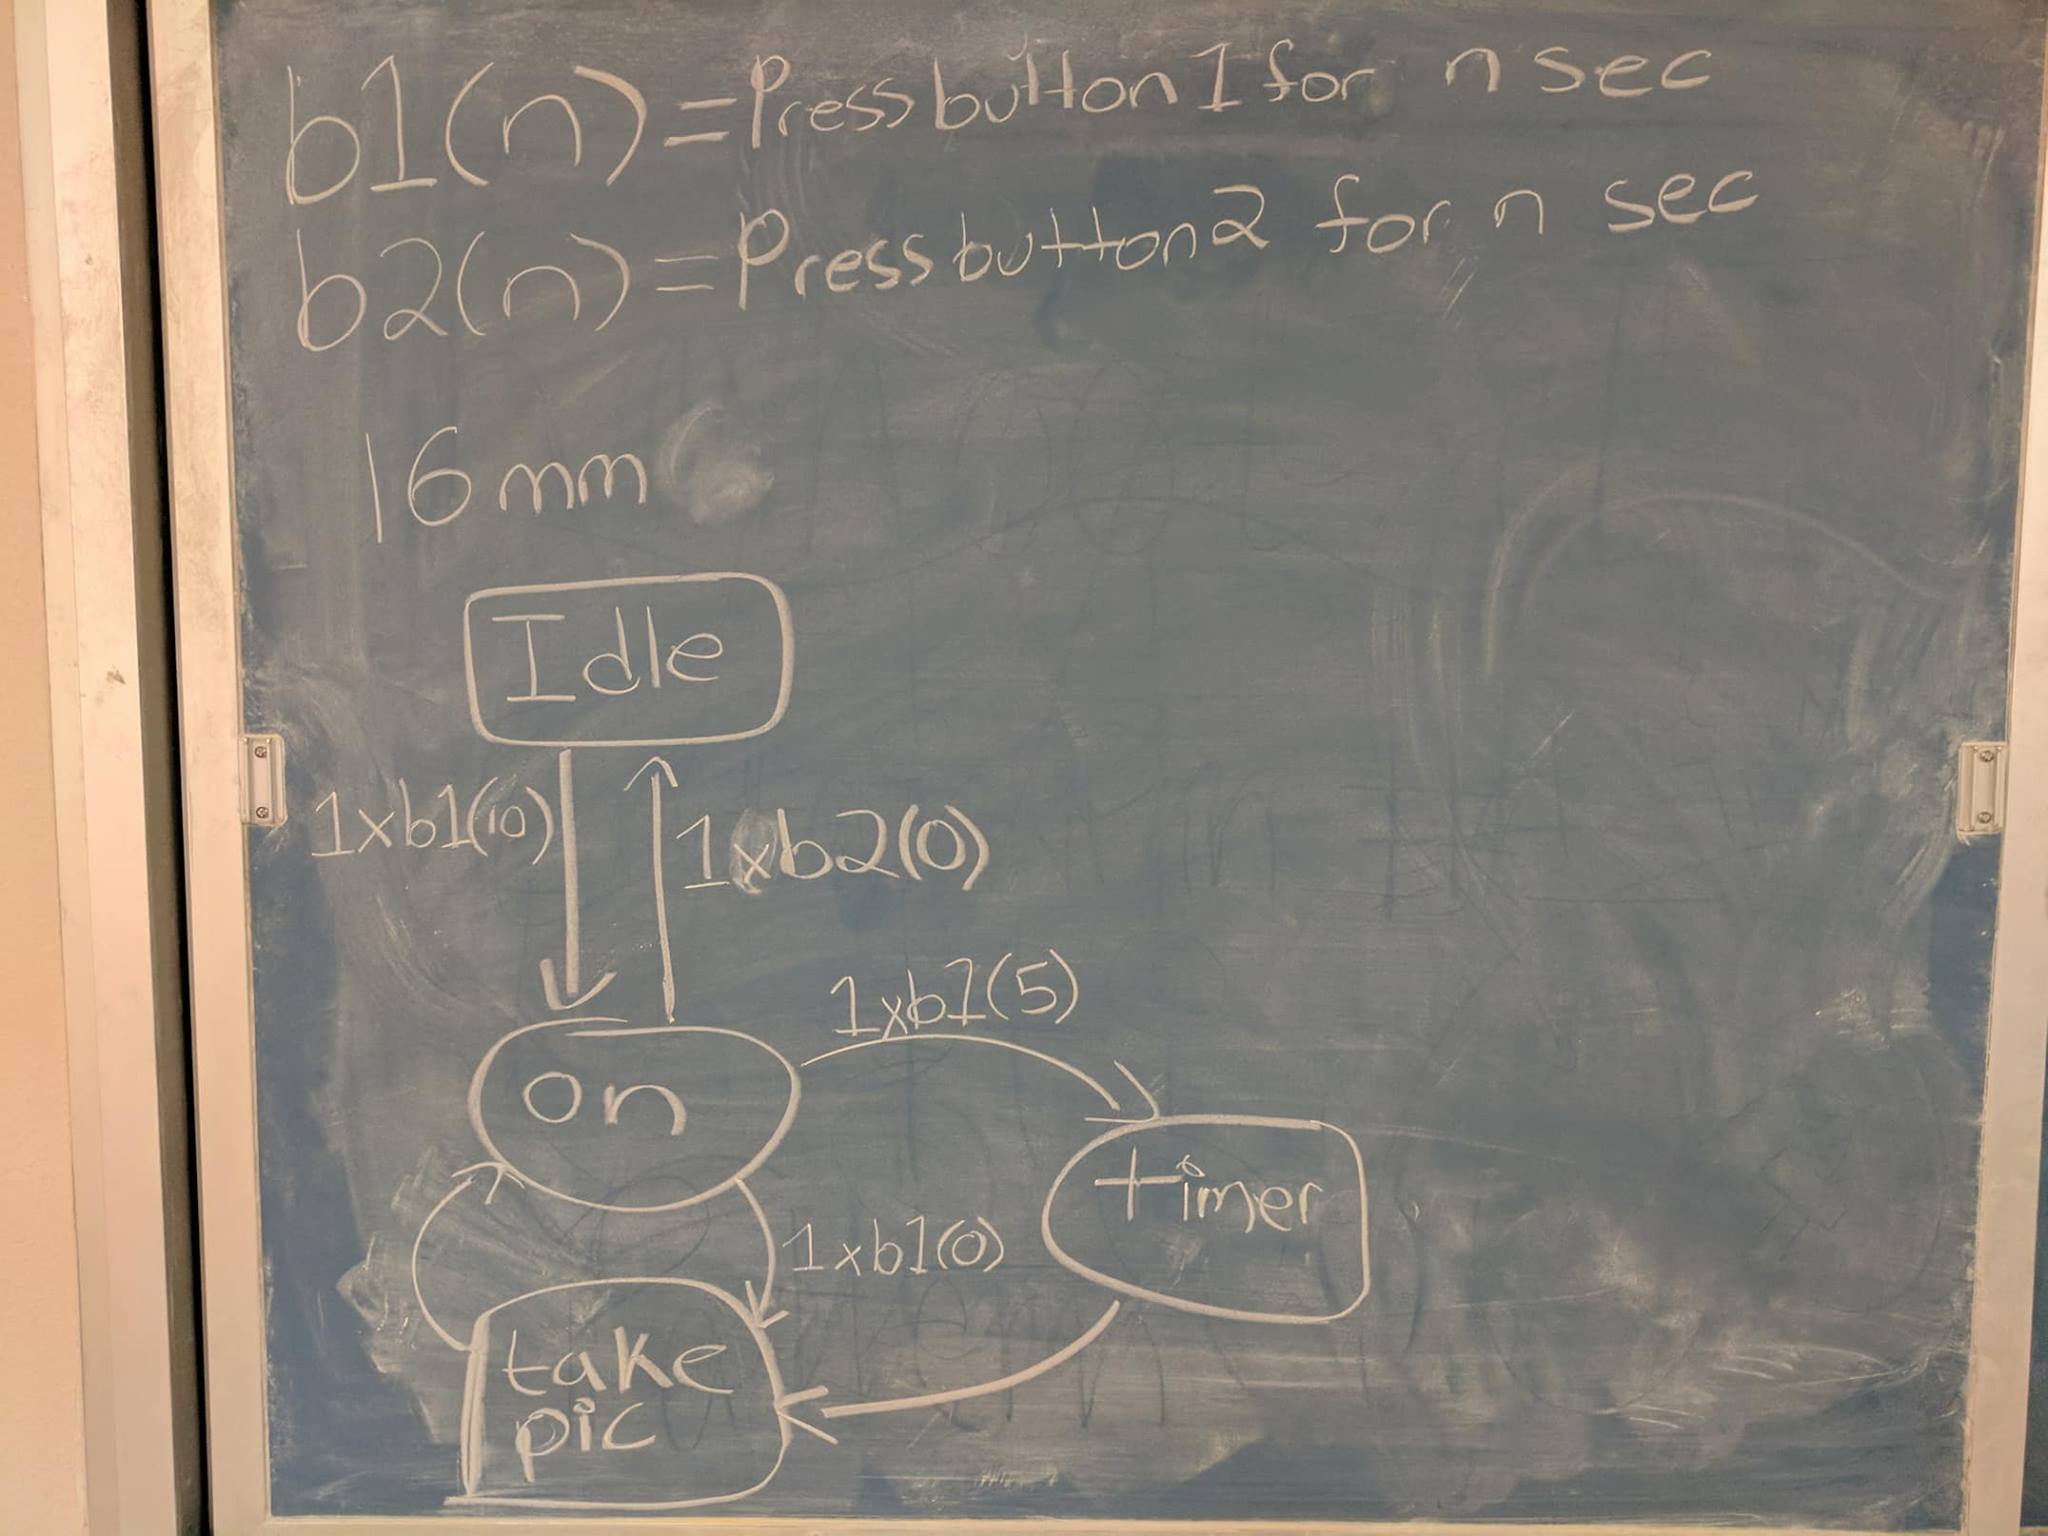 b1(n) = Press button 1 for n sec
b2(n) = Press button 2 for n sec
16 mm
Idle
1xb1(10)
1xb2(0)
1xb1(5)
on
timer
1xb1(0)
take
pic